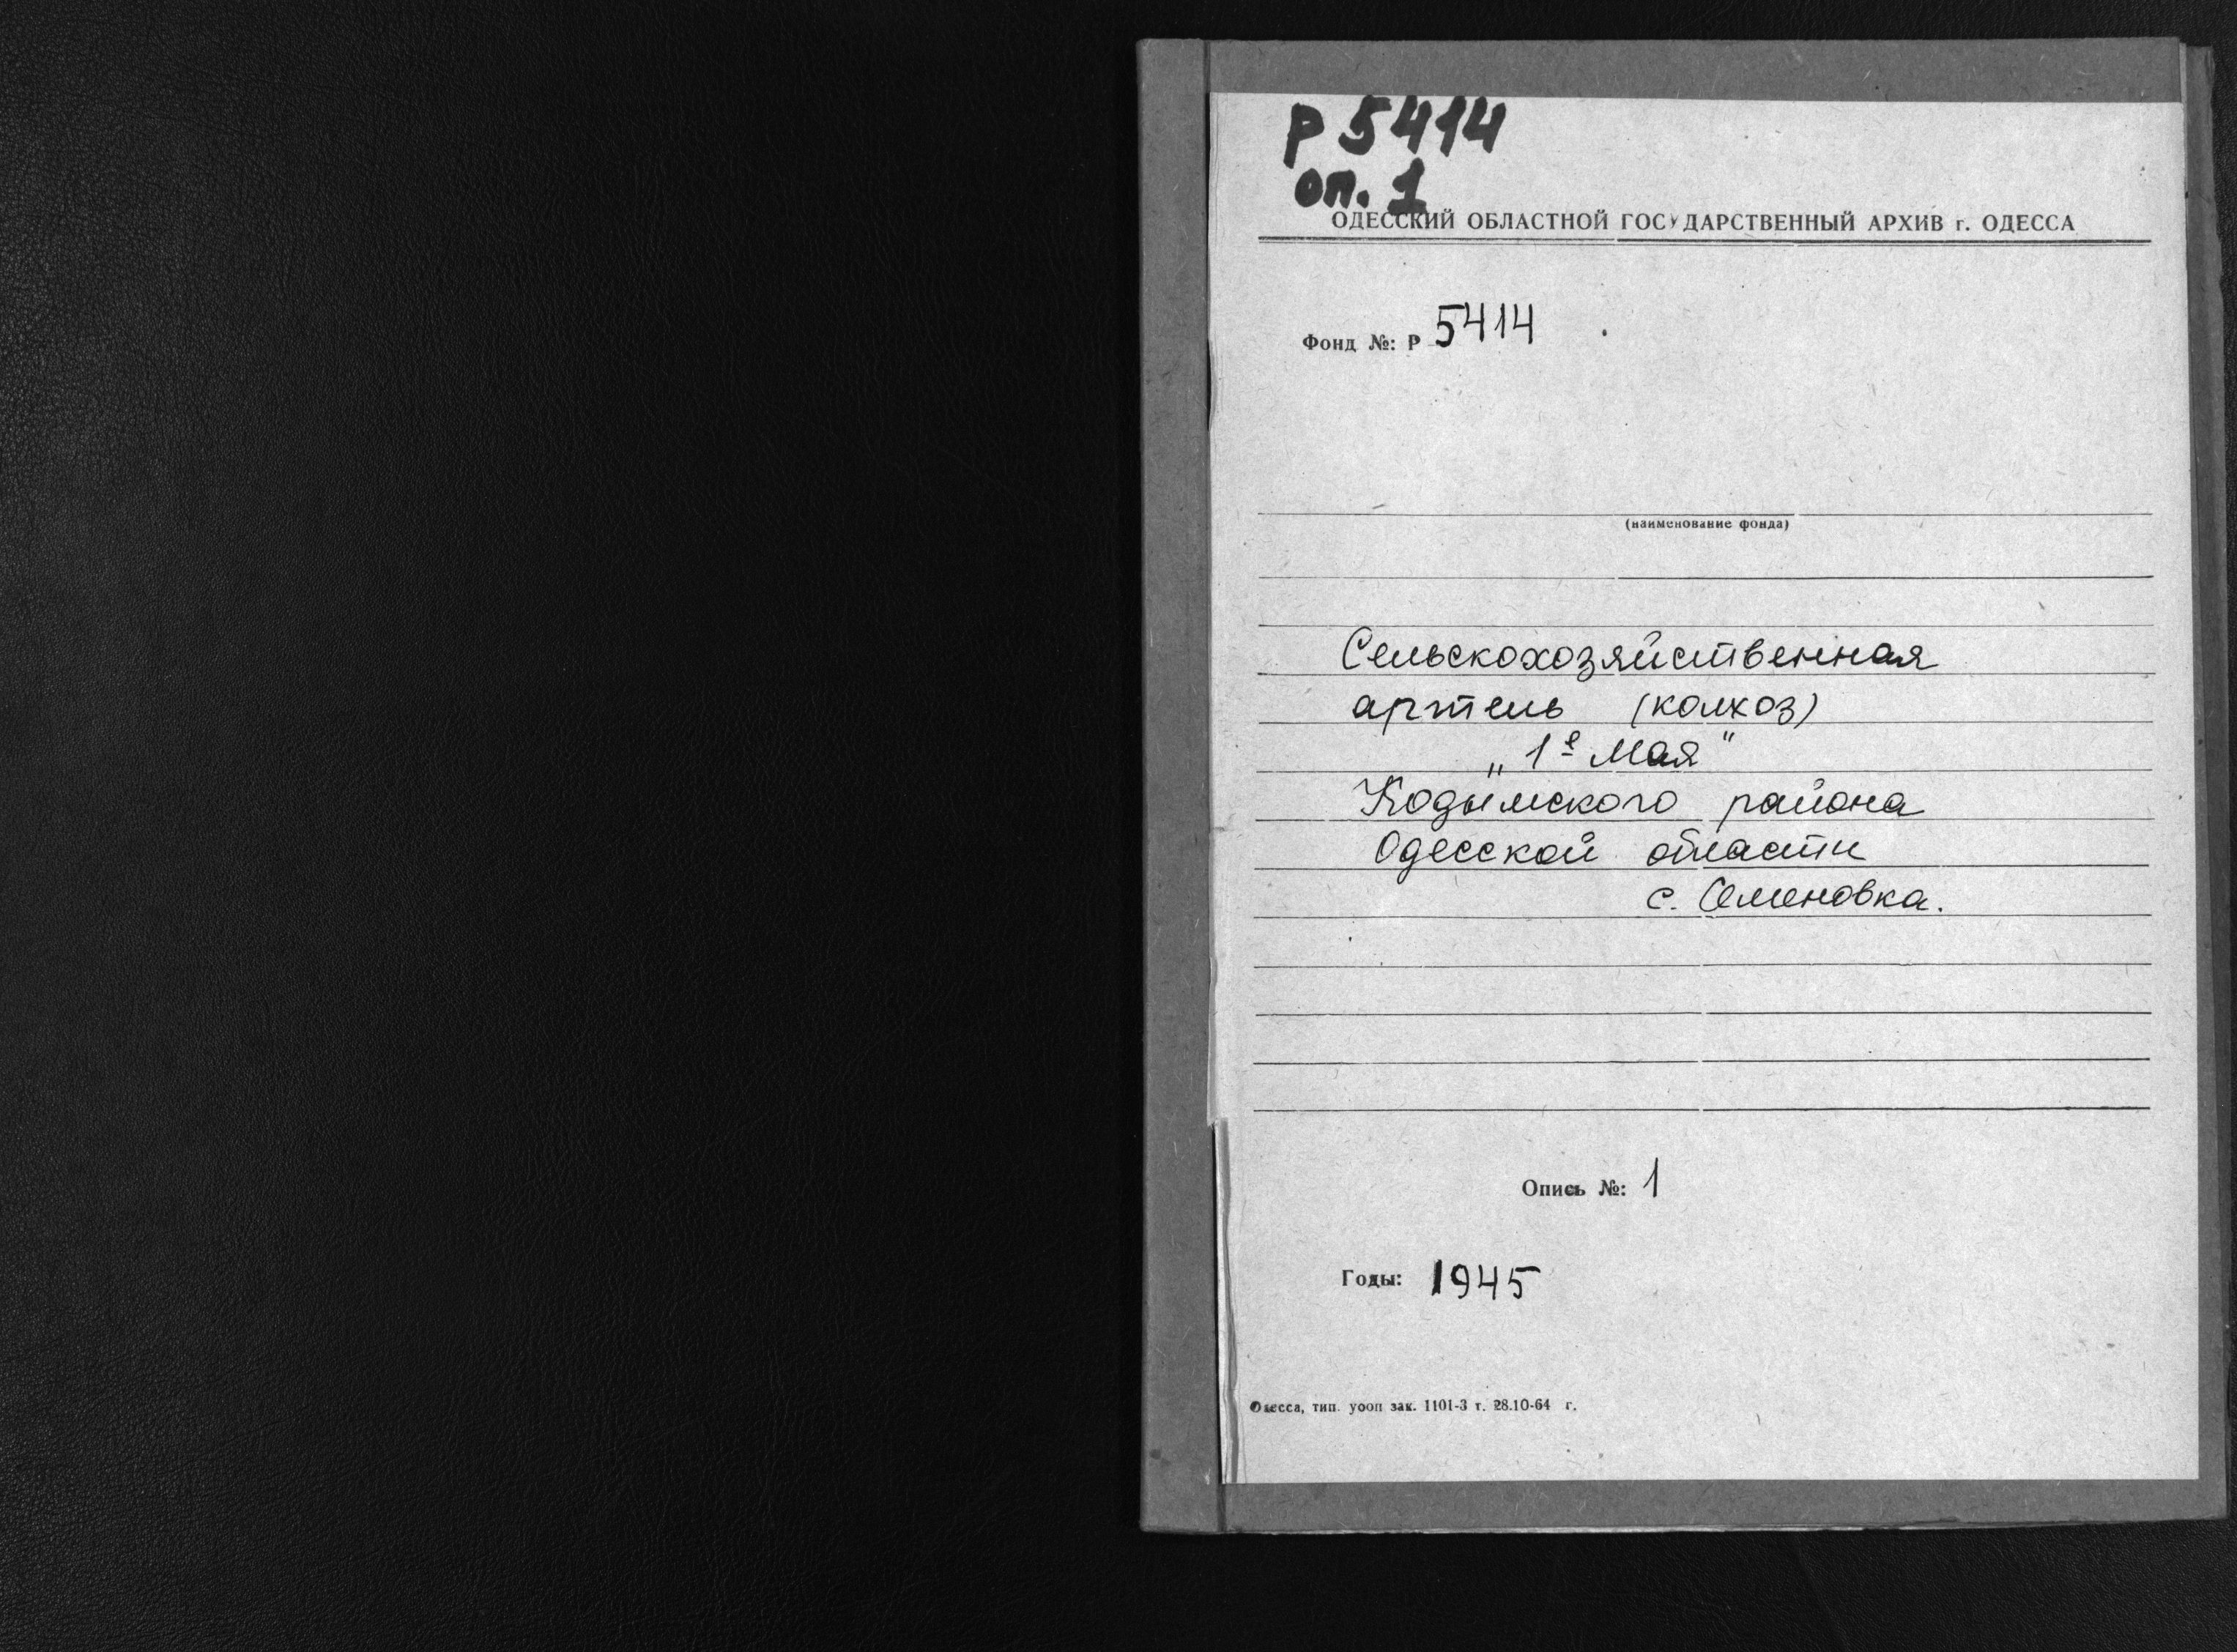 Р 5414
оп. 1
ОДЕССКИЙ ОБЛАСТНОЙ ГОСУДАРСТВЕННЫЙ АРХИВ г. ОДЕССА
Фонд №: Р 5414
(наименование фонда)
Сельскохозяйственная
артель (колхоз)
„1е Мая"
Кодымского района
Одесской области
с. Семеновка.
Опись №: 1
Годы: 1945
Одесса, тип. уооп зак. 1101-3 т. 28.10-64 г.